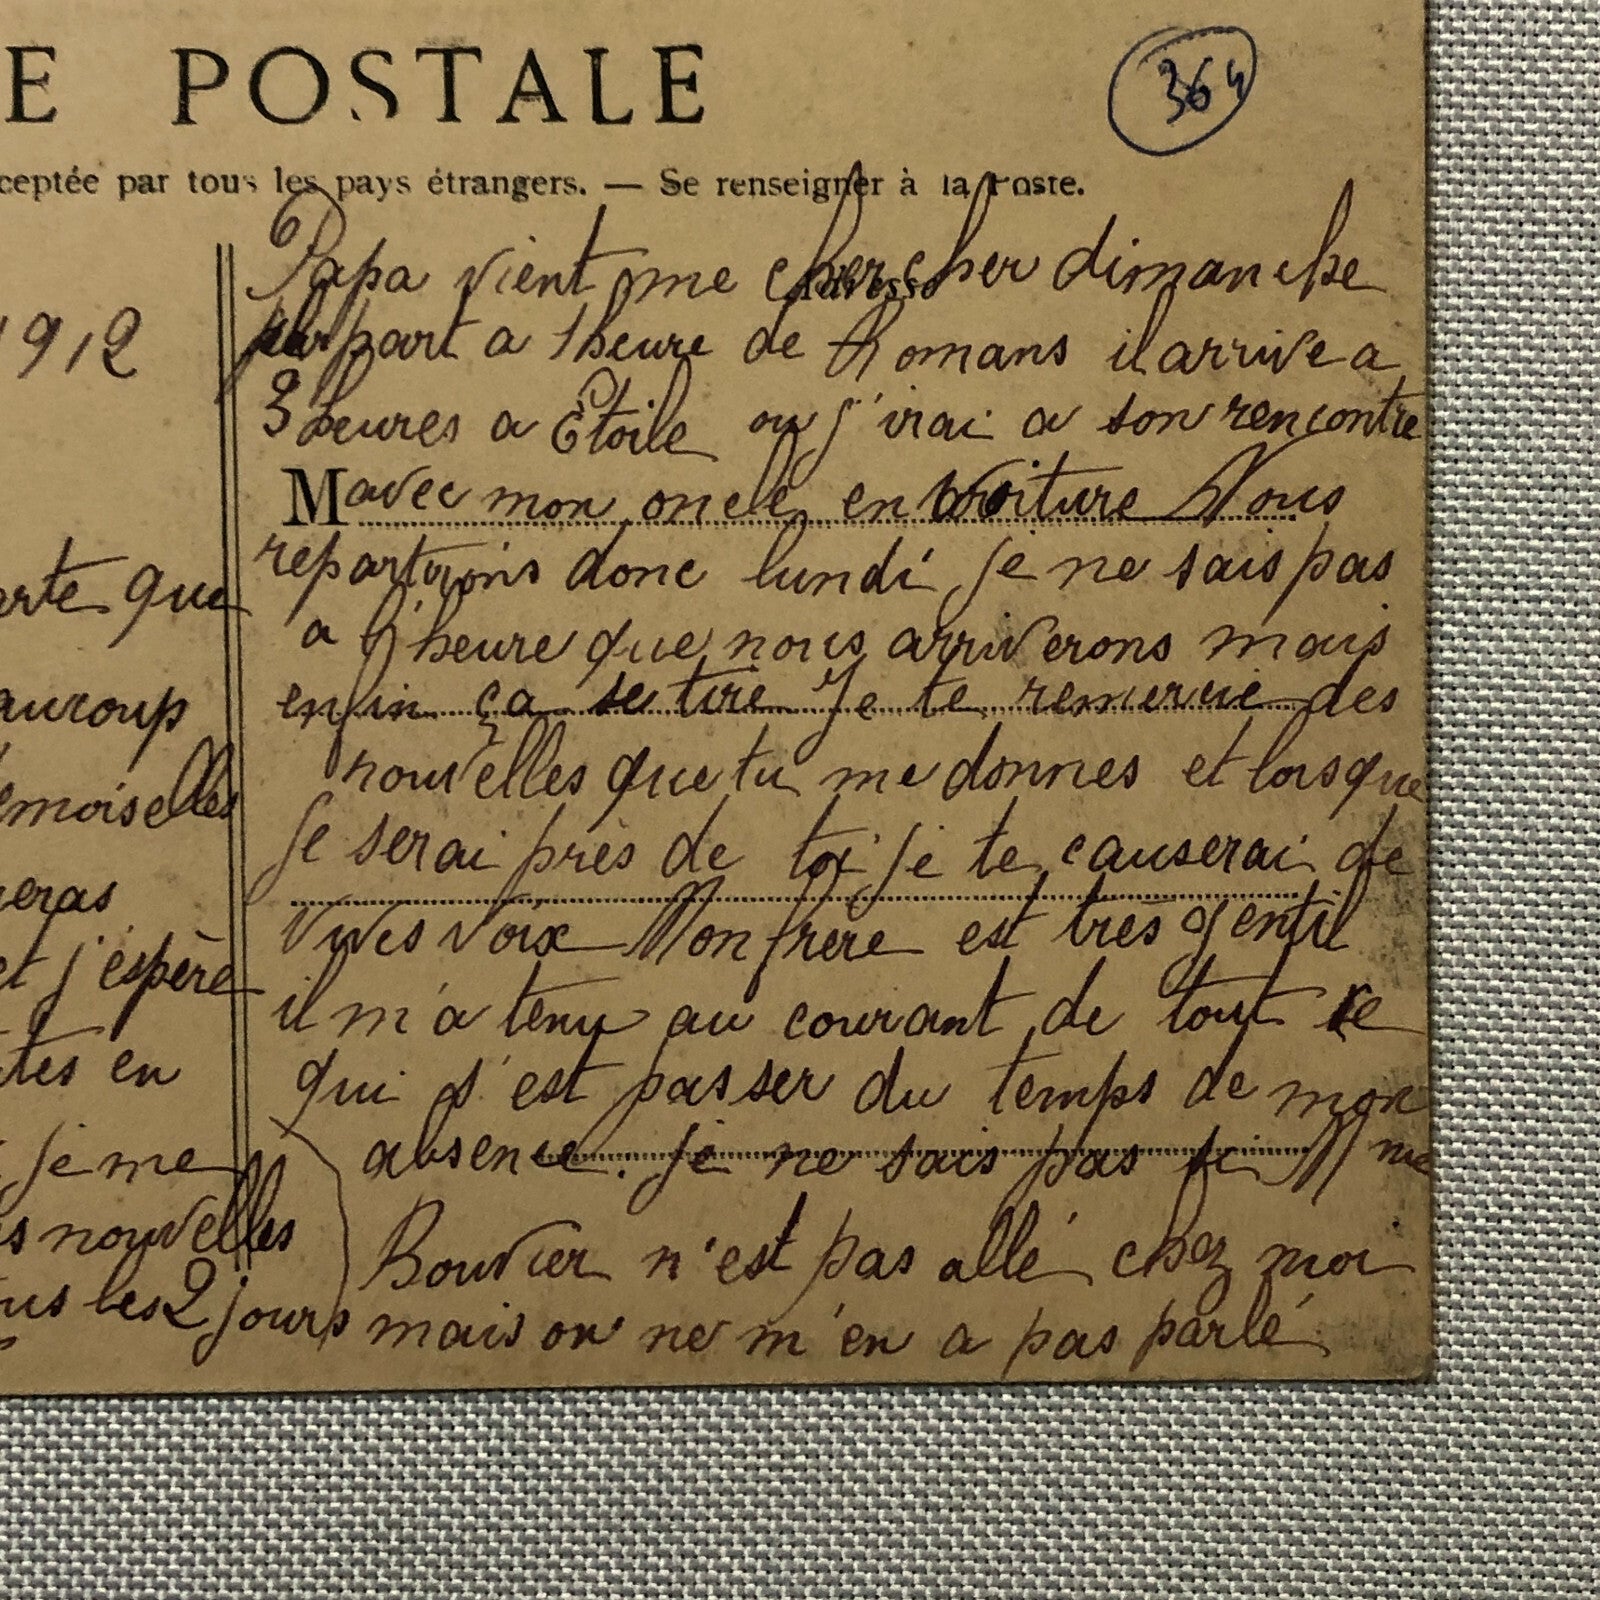 E POSTALE
364
ceptée par tous les pays étrangers. — Se renseigner à la Poste.
1912
arte que
aucoup
emoiselles
eras
et j'espère
tes en
je me
s nouvelles
us les 2 jours
Papa vient me chercher dimanche
Adresse
part a 1 heure de Romans il arrive a
3 heures a Etoile ou j'irai a son rencontre
M avec mon oncle en voiture Nous
repartirons donc lundi je ne sais pas
a l'heure que nous arriverons mais
enfin ça se tire Je te remercie des
nouvelles que tu me donnes et lorsque
je serai près de toi je te causerai de
vives voix Mon frère est très gentil
il m'a tenu au courant de tout ce
qui s'est passer du temps de mon
absence. je ne sais pas si Mme
Bouvier n'est pas allé chez moi
mais on ne m'en a pas parlé